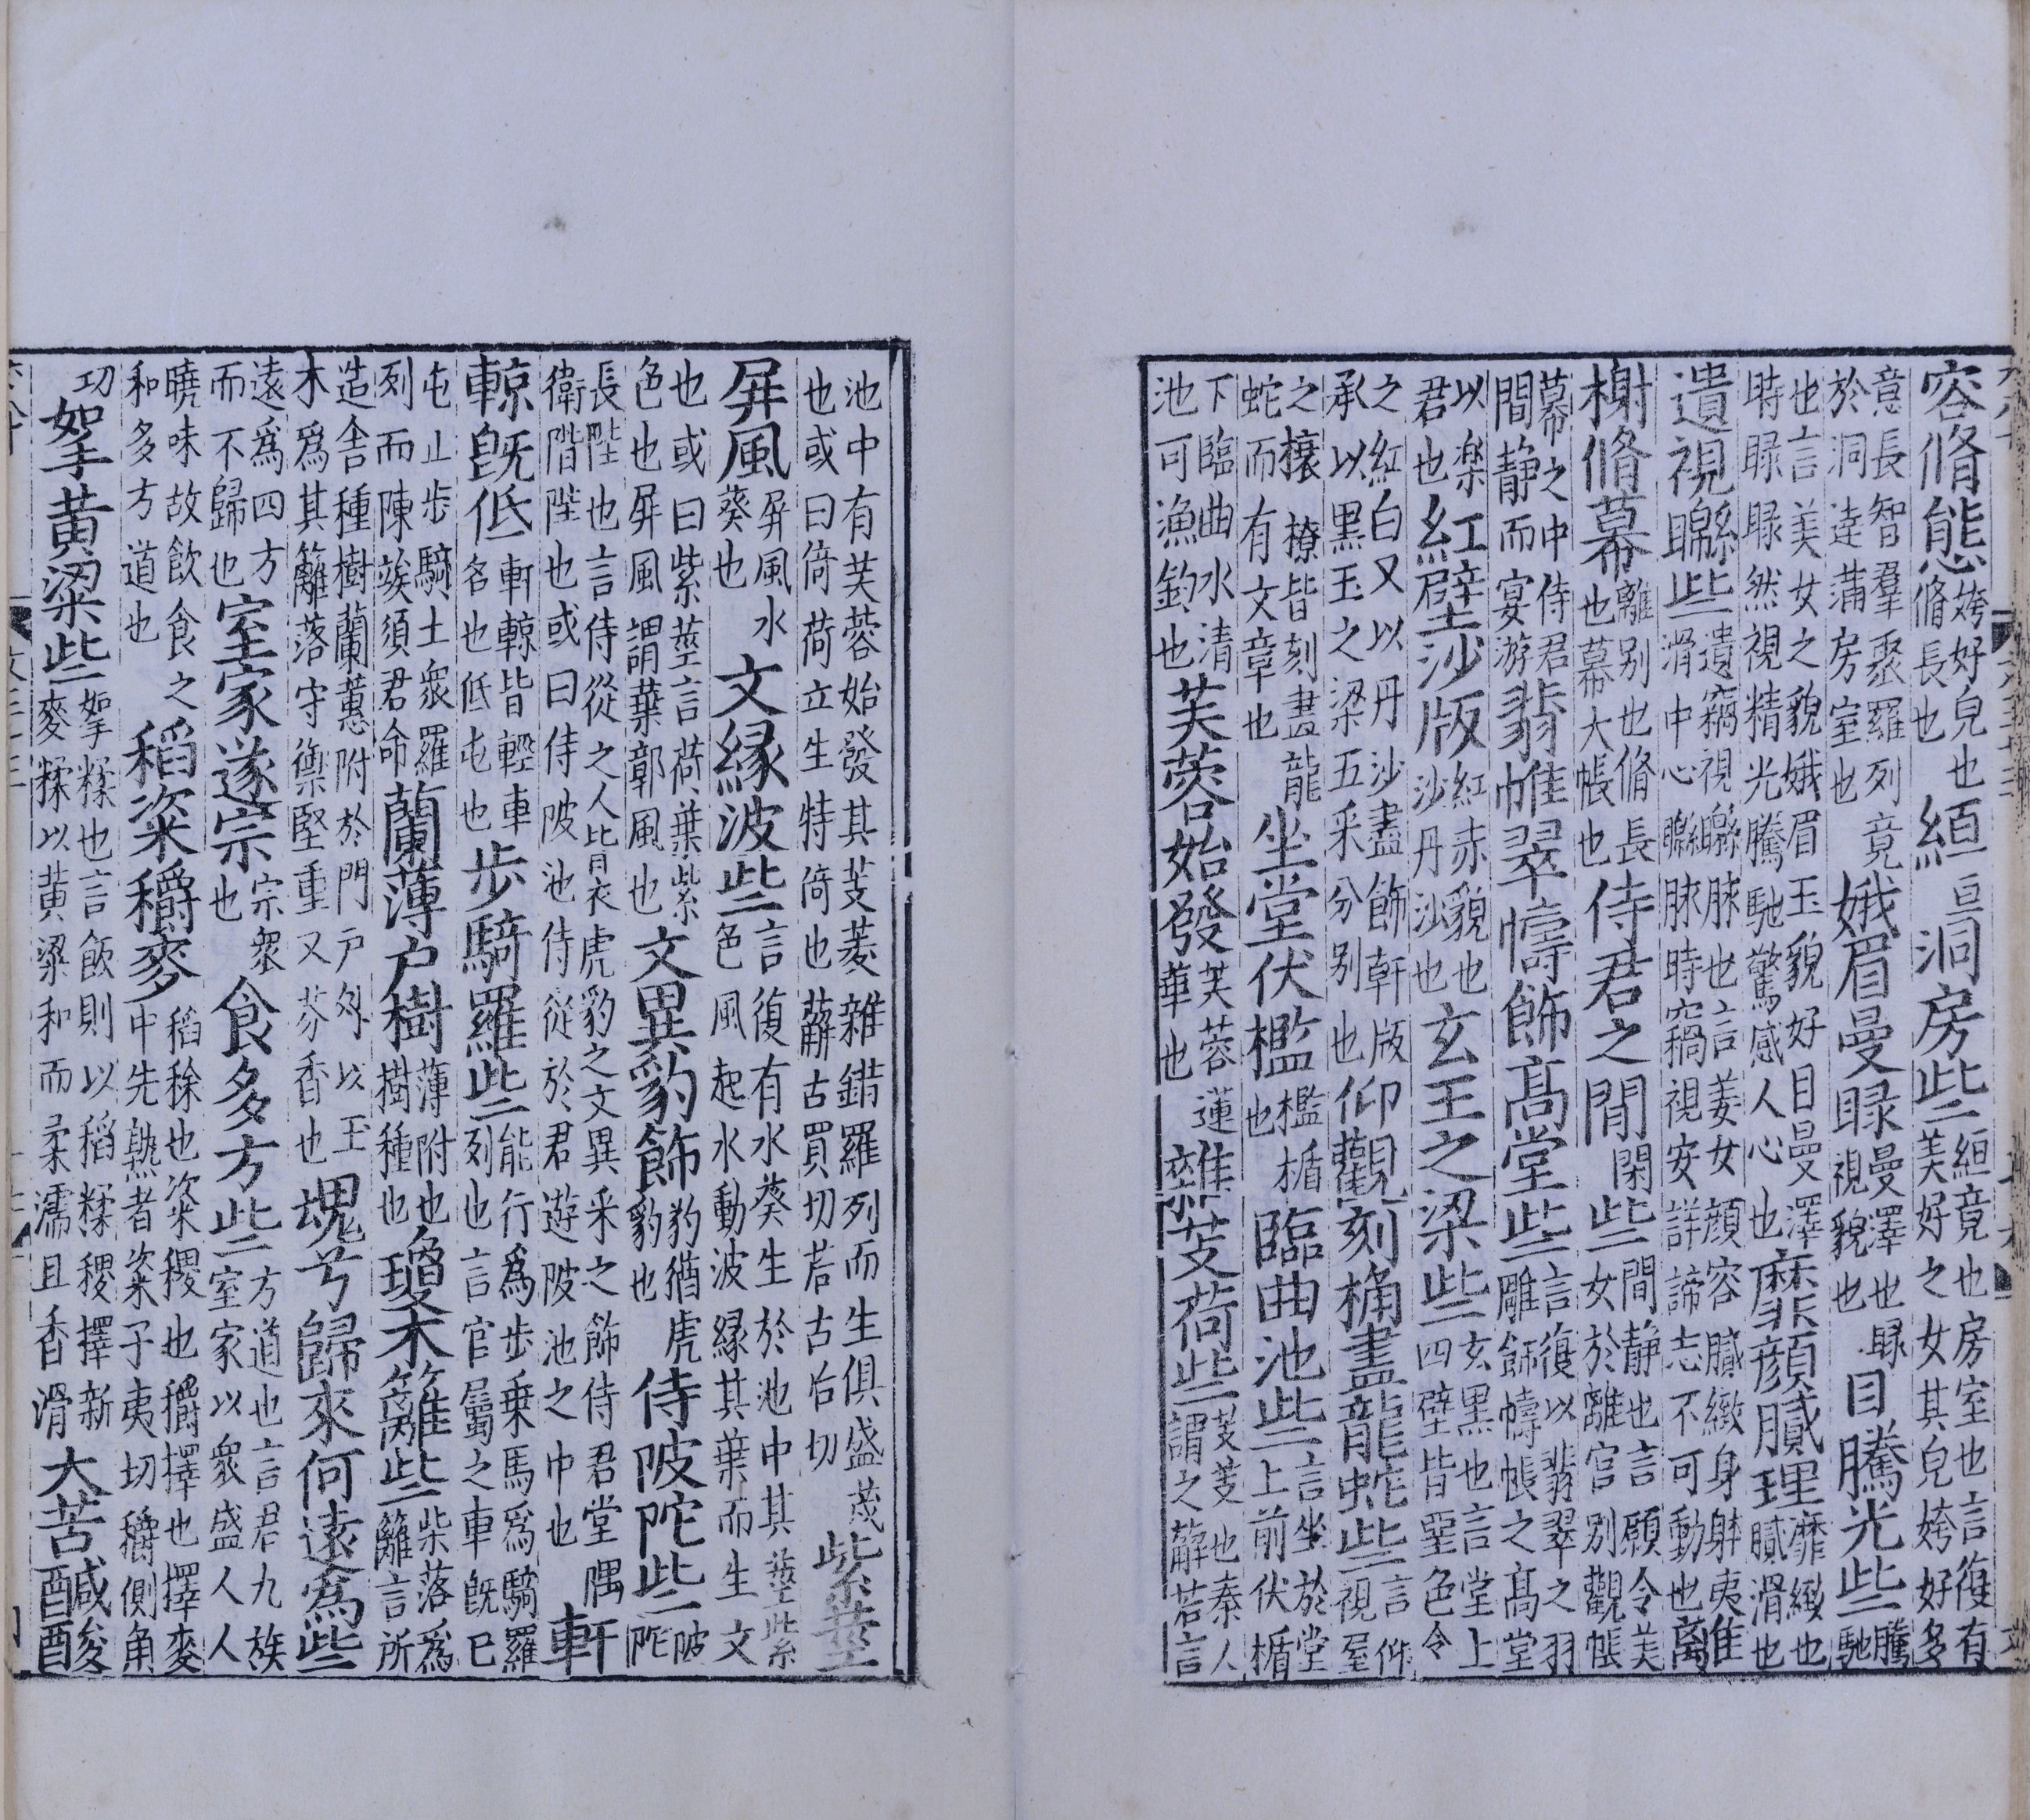 容脩態姱好皃也脩長也絙亘洞房些絙竟也房室也言復有美好之女其皃姱好多
意長智羣聚羅列竟於洞達蒲房室也娥眉曼睩曼澤也睩視貌也目騰光些騰馳
也言美女之貌娥眉玉貌好目曼澤時睩睩然視精光騰馳驚感人心也靡顔膩理靡緻也膩滑也
遺視矊些遺竊視矊脉也言姜女顔容膩緻身躰夷滑中心矊脉時竊視安詳諦志不可動也離
榭脩幕離别也脩長也幕大帳也侍君之閒閑些間静也言願令美女於離宫别觀帳
幕之中侍君間静而宴游翡帷翠幬飾髙堂些言復以翡翠之羽雕飾幬帳之髙堂
以楽君也紅壁沙版紅赤貌也沙丹沙也玄玉之梁些玄黒也言堂上四壁皆堊色令
之紅白又以丹沙盡飾軒版承以黒玉之梁五采分别也仰觀刻桷畫龍蛇些言仰視屋
之榱橑皆刻畫龍蛇而有文章也坐堂伏檻檻楯也臨曲池些言坐於堂上前伏楯
下臨曲水清池可漁釣也芙蓉始發芙蓉蓮華也雜芰荷些芰芰也秦人謂之薢茩言
池中有芙蓉始發其芰菱雜錯羅列而生俱盛茂也或曰倚荷立生特倚也薢古買切茩古后切紫莖
屏風屏風水葵也文緣波些言復有水葵生於池中其莖紫色風起水動波緣其葉而生文
也或曰紫莖言荷葉紫色也屏風謂葉鄣風也文異豹飾豹猶虎豹也侍陂陀些陂陀
長陛也言侍從之人皆衣虎豹之文異采之飾侍君堂隅衛階陛也或曰侍陂池侍從於君遊陂池之中也軒
輬既低軒輬皆輕車名也低屯也步騎羅些能行爲步乗馬爲騎羅列也言官屬之車既已
屯止步騎士衆羅列而陳竢須君命蘭薄户樹薄附也樹種也瓊木籬些柴落爲籬言所
造舎種樹蘭蕙附於門户外以玉木爲其籬落守禦堅重又芬香也魂兮歸來何遠爲些
遠爲四方而不歸也室家遂宗宗衆也食多方些方道也言君九族室家以衆盛人人
曉味故飲食之和多方道也稻粢穱麥稻稌也粢稷也穱擇也擇麥中先熟者粢子夷切穱側角
切挐黄粱些挐糅也言飯則以稻糅稷擇新麥糅以黄粱和而柔濡且香滑大苦醎酸